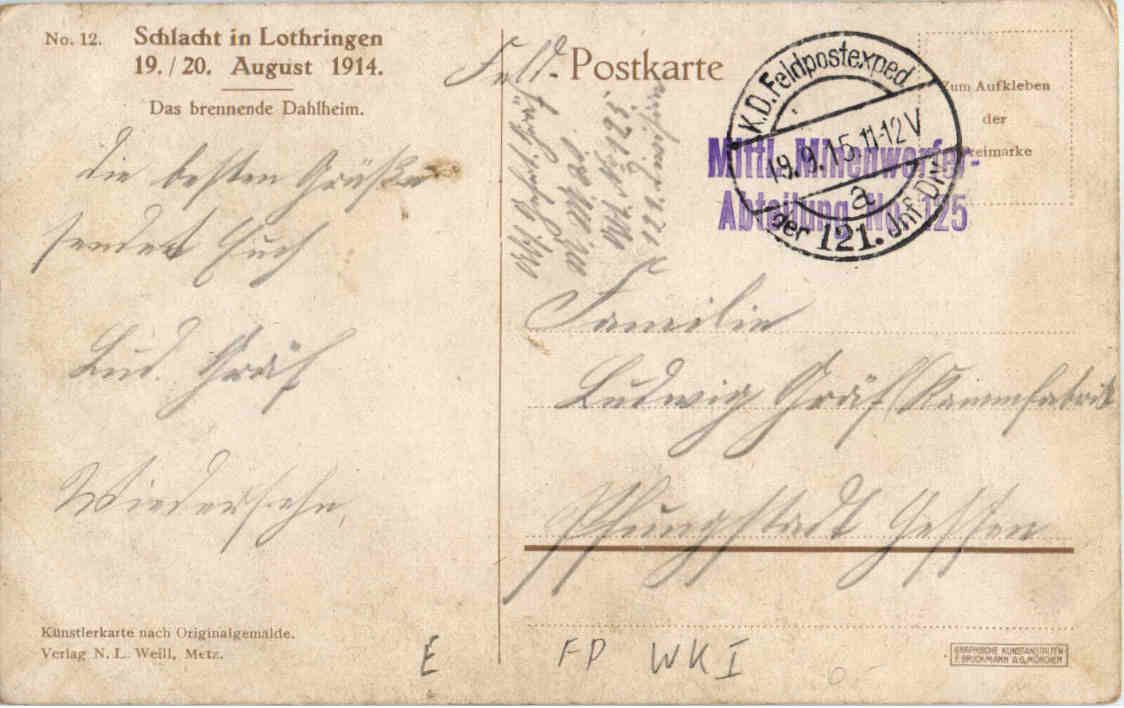 No. 12. Schlacht in Lothringen
19./20. August 1914.
Das brennende Dahlheim.
Die besten Grüße
sendet Euch
Lud. Gräf
Wiedersehn,
Künstlerkarte nach Originalgemälde.
Verlag N. L. Weill, Metz.
Feld-Postkarte
Zum Aufkleben
der
K.D.Feldpostexped.
19.9.15.11-12V
a
der 121. Inf.Div.
Mittl. Minenwerfer-
Abteilung No. 125
121. Division
Familie
Ludwig Gräf Kammfabrik
Pfungstadt Hessen
GRAPHISCHE KUNSTANSTALTEN
F. BRUCKMANN A.G. MÜNCHEN
E
FP WK I